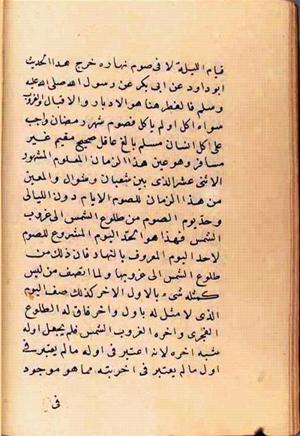 قيام الليلة لا في صوم نهاره خرج هذا الحديث
ابو داود عن ابى بكر عن رسول الله صلى الله عليه
وسلم فالفطر هنا هو الادبار والاقبال الغروب
سواء اكل او لم ياكل فصوم شهر رمضان واجب
على كل انسان مسلم بالغ عاقل صحيح مقيم غير
مسافر وهو عين هذا الزمان المعلوم المشهور
الاثنى عشر الذى بين شعبان وشوال والمعين
من هذا الزمان للصوم الايام دون الليالى
وحد يوم الصوم من طلوع الشمس الى غروب
الشمس فهذا هو الحد اليوم المشروع للصوم
لاحد اليوم المعروف بالنهار فان ذلك من
طلوع الشمس الى غروبها ولما اتصف من ليس
كمثله شىء بالاول الاخر كذلك صف اليوم
الذى لا مثل له باول واخر فاوله الطلوع
الفجرى واخره الغروب الشمس فلم يجعل اوله
شبه اخره لانه اعتبر فى اوله ما لم يعتبر فى
اول ما لم يعتبر فى اخريته مما هو موجود
فى